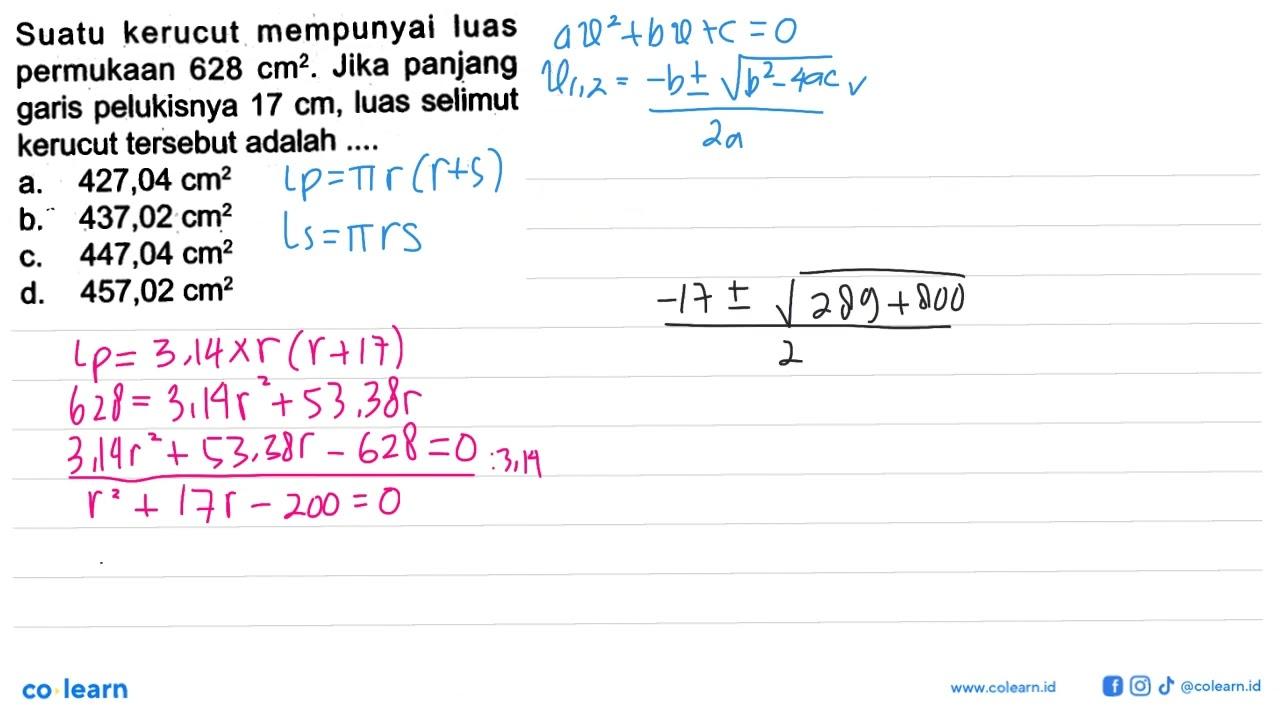 Suatu kerucut mempunyai luas
permukaan 628 cm². Jika panjang
garis pelukisnya 17 cm, luas selimut
kerucut tersebut adalah ....
a. 427,04 cm²
b. 437,02 cm²
c. 447,04 cm²
d. 457,02 cm²
Lp = πr (r+s)
Ls = πrs
ax² + bx + c = 0
x₁,₂ = -b ± √b² - 4ac ✓
2a
Lp = 3,14 × r (r + 17)
628 = 3,14r² + 53,38r
3,14r² + 53,38r - 628 = 0 :3,14
r² + 17r - 200 = 0
-17 ± √289 + 800
2
co learn
www.colearn.id
@colearn.id